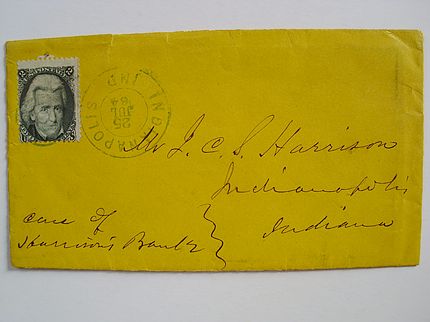 INDIANAPOLIS IND
25
JUL
64
Mr J. C. S. Harrison
Indianapolis
Indiana
care of
Harrison's Bank